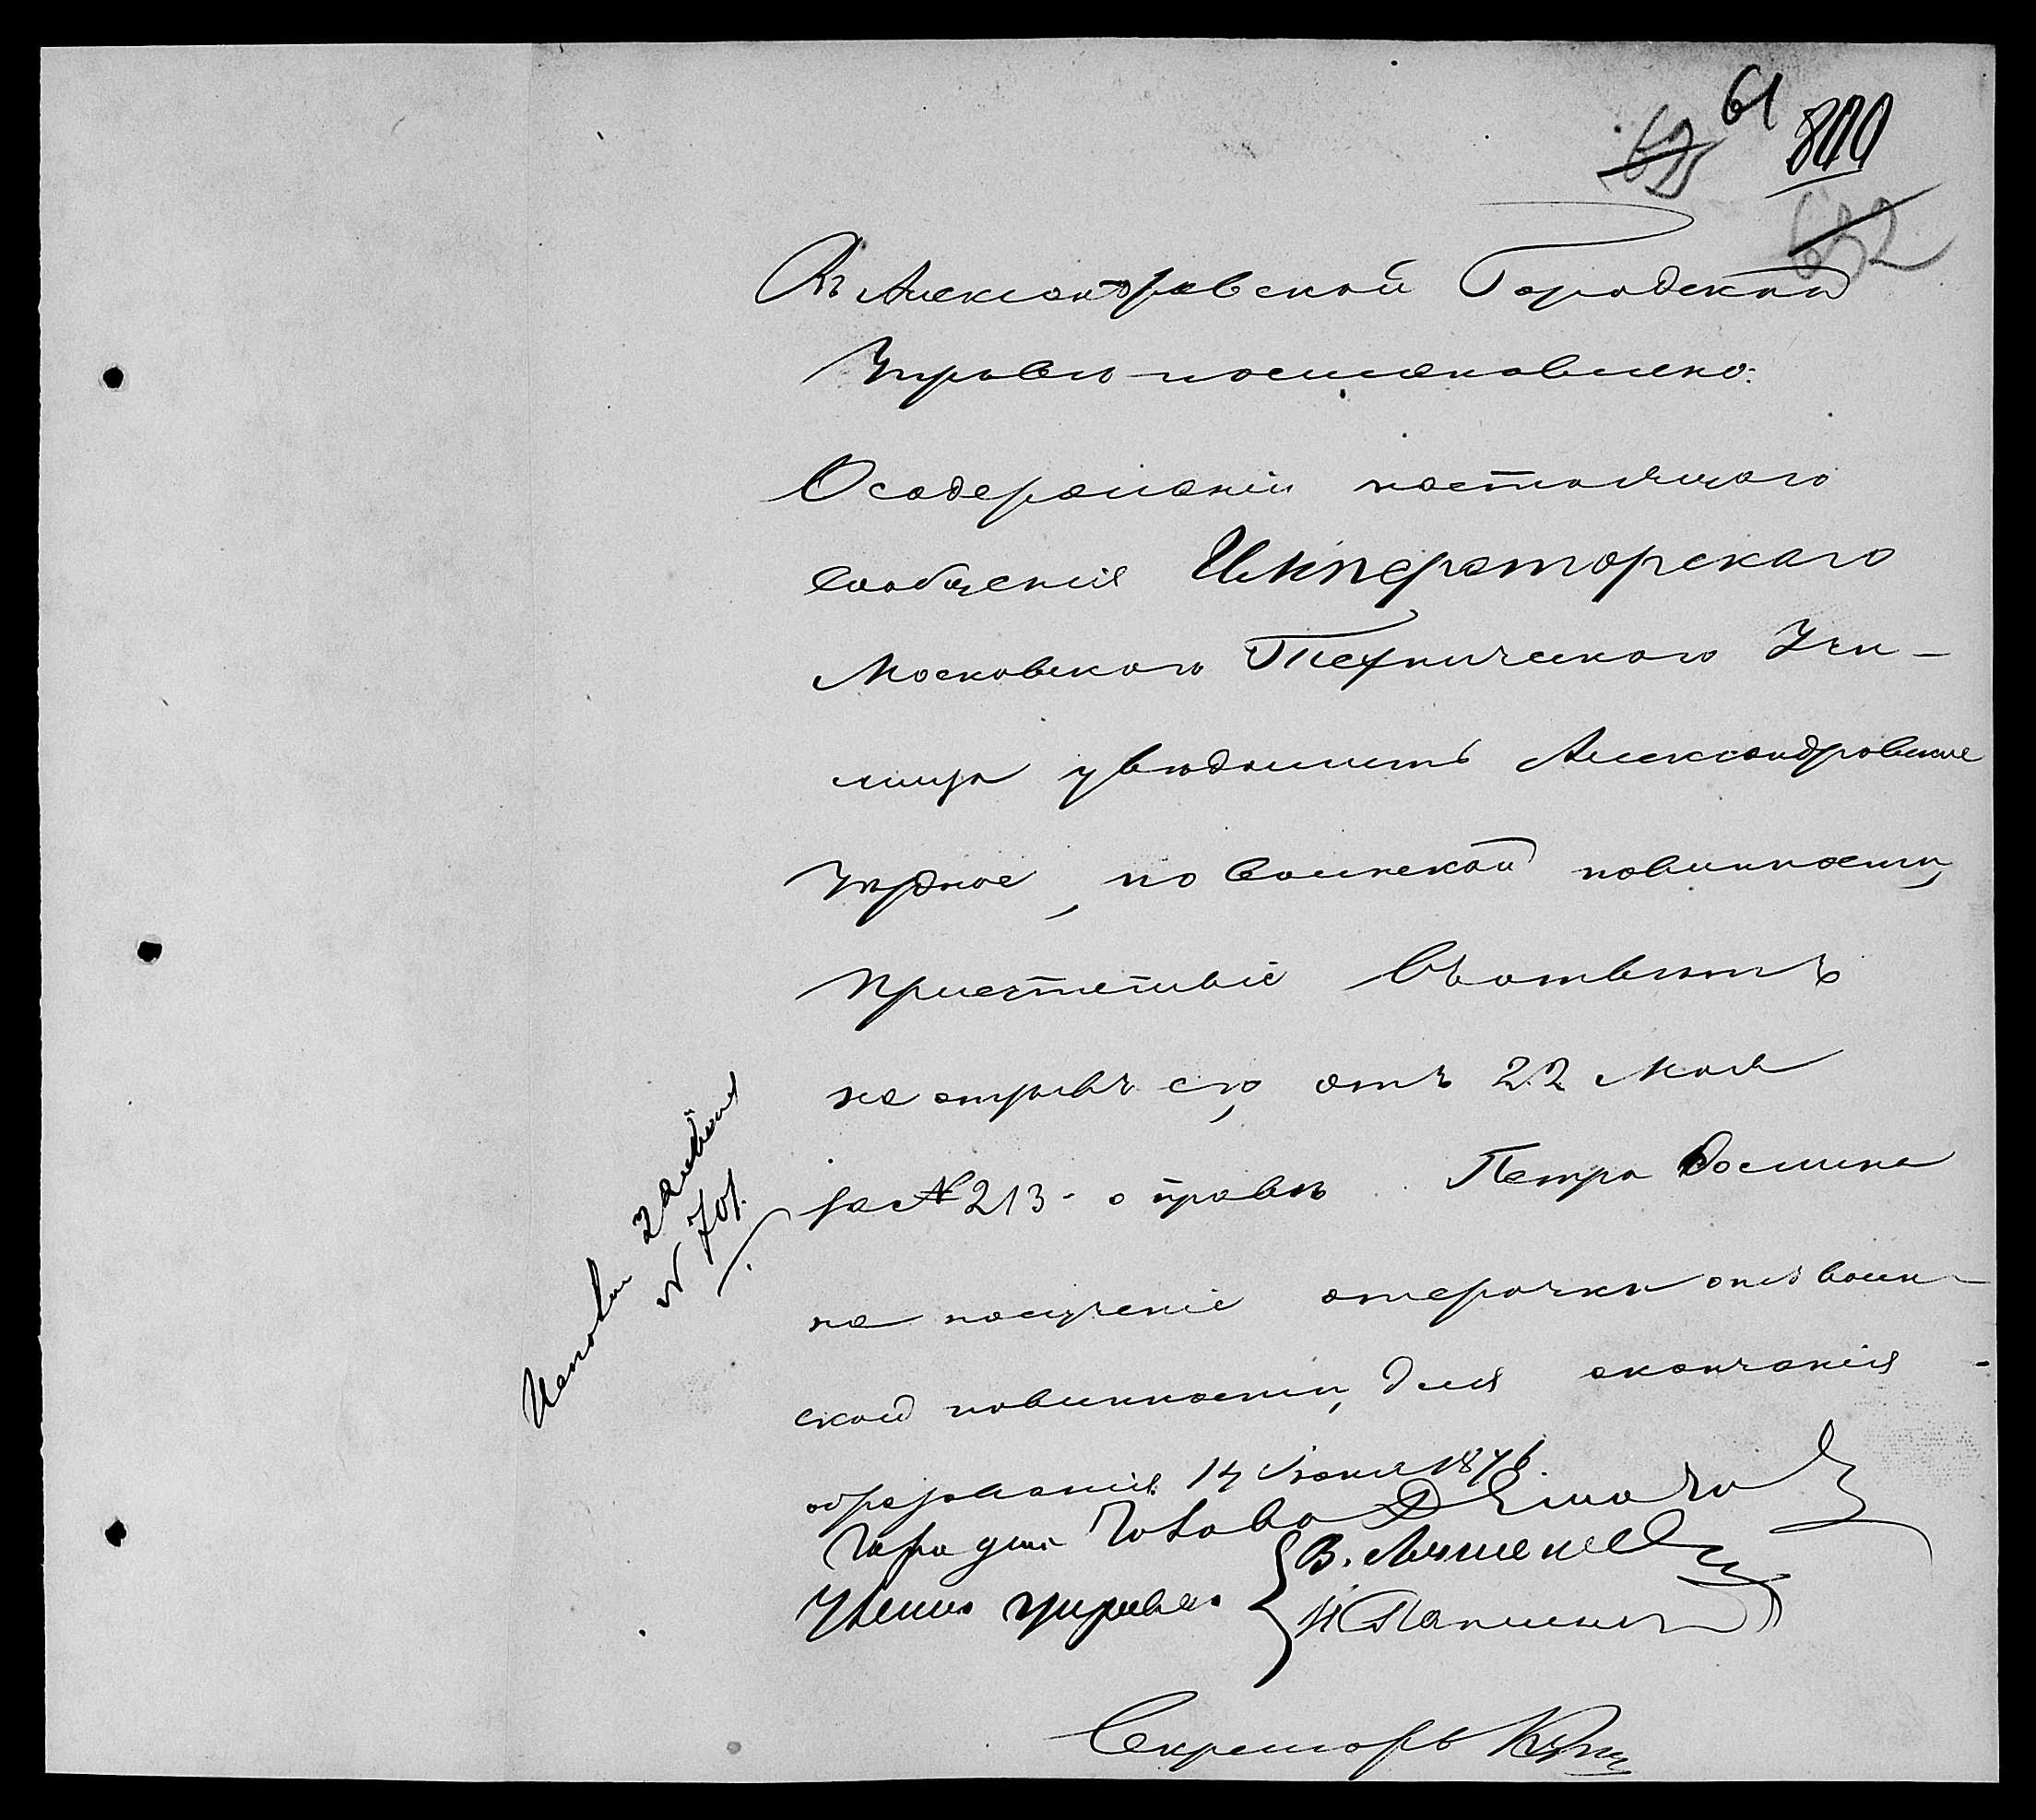 61
800
652
Въ Александровской Городской
Управѣ постановлено:
О содержаніи настоящаго
сообщенія Императорскаго
Московскаго Техническаго Учи-
лища увѣдомить Александровское
Уѣздное, по воинской повинности,
Присутствіе въ отвѣтъ
на отзывъ его, отъ 22 Мая
за № 213 - о правѣ Петра
на полученіе отсрочки отъ воин-
ской повинности, для окончанія
образованія. 14 Іюня 1876.
Городск. Голова
Члены управы В.
Н
Секретарь
№ 701.